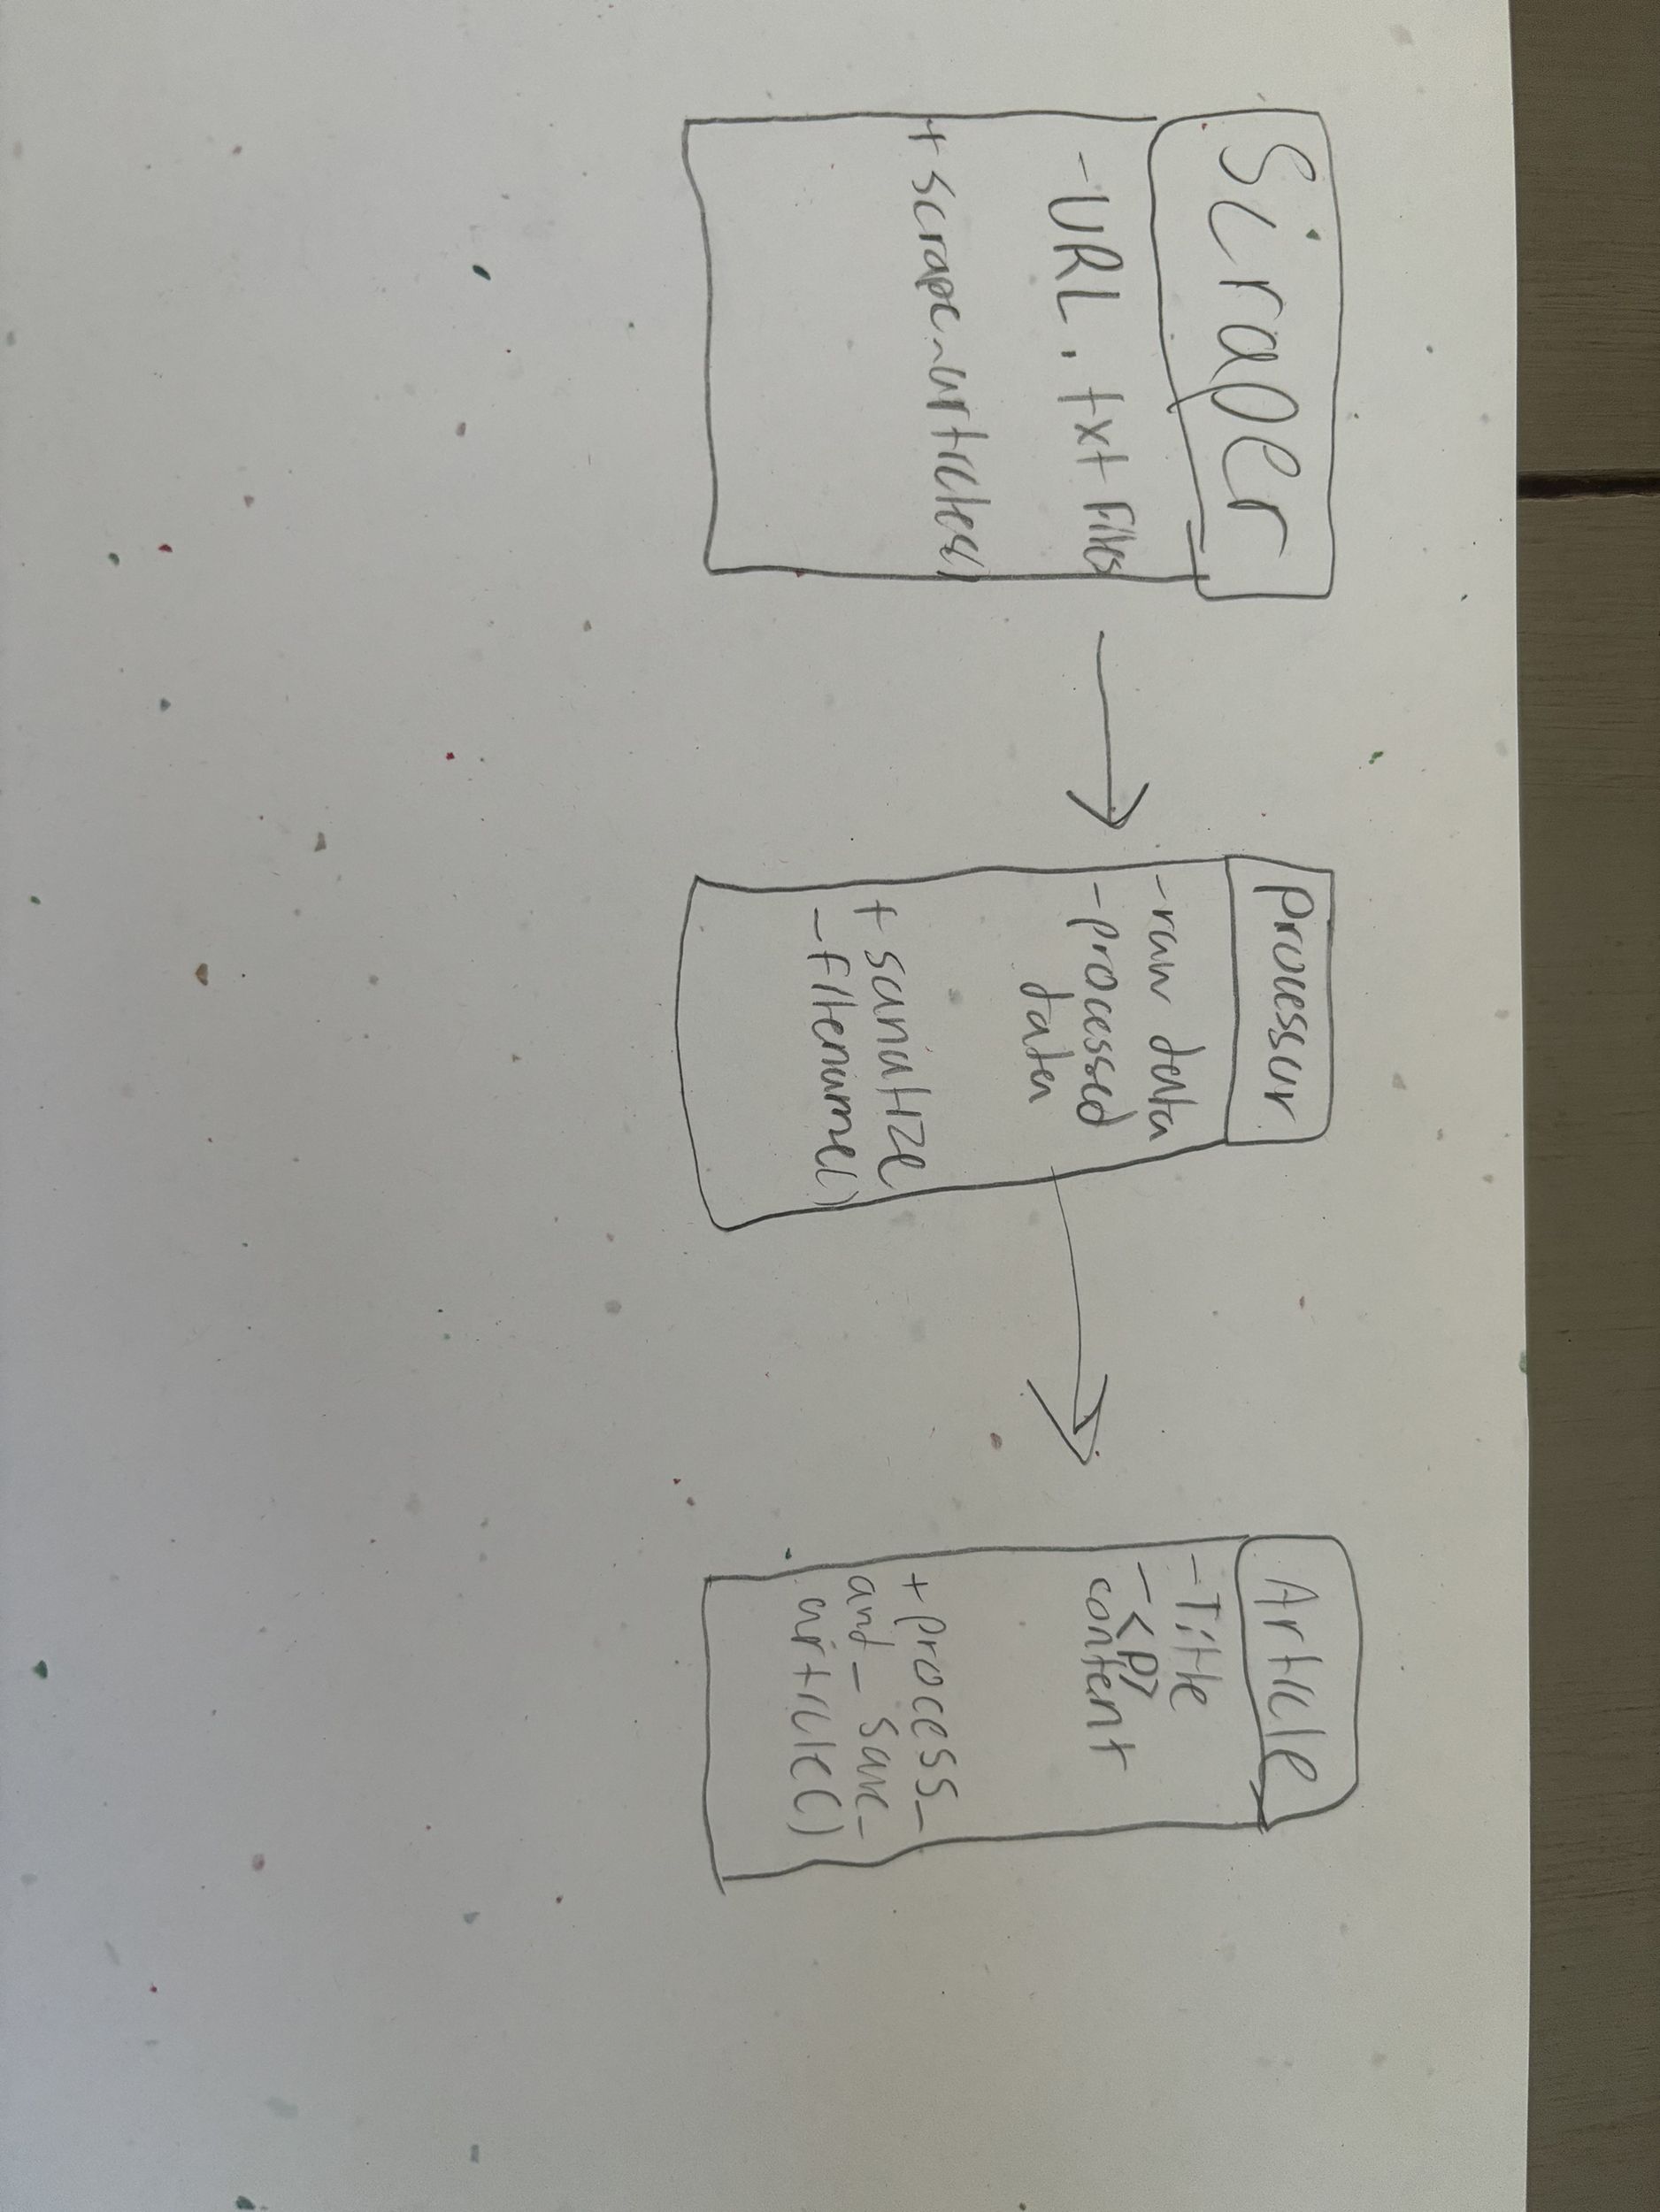 Scraper
- URL.txt Files
+ scrape_articles()
Processor
- raw data
- processed
data
+ sanatize
_filename()
Article
- Title
- <p>
content
+ process_
and_save_
article()